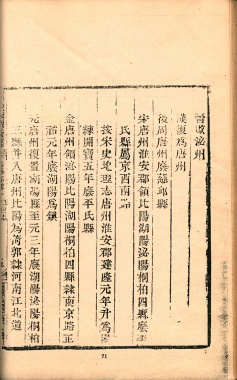 晉改泌州
漢復為唐州
後周唐州廢慈邱縣
宋唐州淮安郡領比陽湖陽泌陽桐柏四縣廢平
氏縣屬京西南路
按宋史地理志唐州淮安郡建隆元年升為
隸開寶五年廢平氏縣
金唐州領泌陽比陽湖陽桐柏四縣隸南京路
元年廢湖陽為鎮
元唐州復置湖陽縣至元三年廢湖陽泌陽桐柏
三縣并入唐州比陽為倚郭隸河南江北道
71